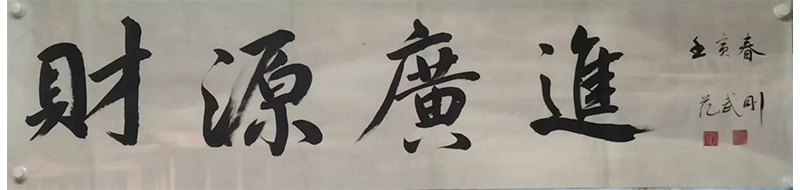 財源廣進
壬寅春
范武刚